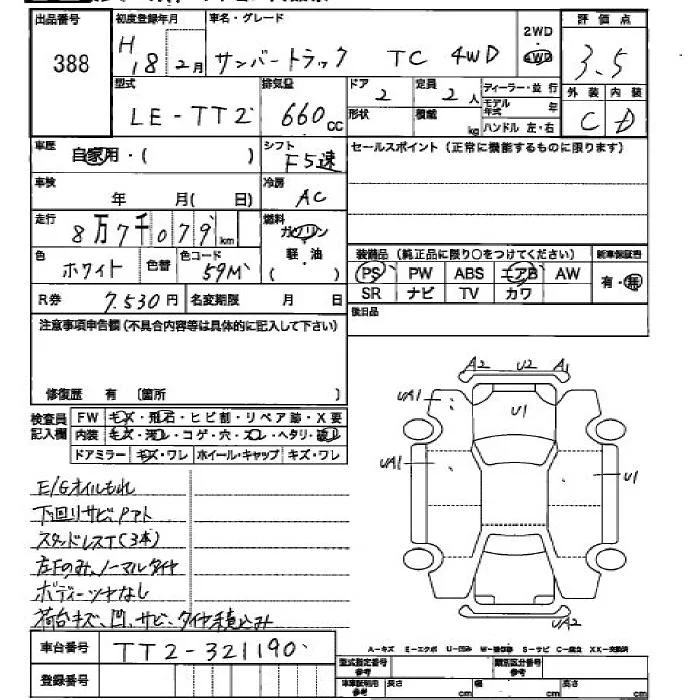 出品番号 388
初度登録年月 H18 2月
車名・グレード サンバートラック TC 4WD
2WD
4WD
評価点 3.5
外装 C 内装 D
型式 LE-TT2
排気量 660cc
ドア 2
定員 2人
形状
積載 kg
ディーラー・並行
モデル年式 年
ハンドル 左・右
車歴 自家用・( )
シフト F5速
セールスポイント(正常に機能するものに限ります)
車検 年 月( 日)
冷房 AC
走行 8万7千079km
燃料 ガソリン
軽・油
( )
色 ホワイト 色替
色コード 59M
装備品(純正品に限り○をつけてください)
新車保証書
PS PW ABS エアB AW
有・無
SR ナビ TV カワ
R券 7,530円
名変期限 月 日
後日品
注意事項申告欄(不具合内容等は具体的に記入して下さい)
修復歴 有 〔箇所 〕
検査員記入欄
FW キズ・飛石・ヒビ割・リペア跡・X要
内装 キズ・汚レ・コゲ・穴・スレ・ヘタリ・破レ
ドアミラー キズ・ワレ ホイール・キャップ キズ・ワレ
A2 U2 A1
UA1
U1
UA1
U1
UA2
E/Gオイルもれ
下回りサビ、Pマト
スタッドレスT(3本)
左Fのみ、ノーマルタイヤ
ボディーツヤなし
荷台キズ、凹、サビ、タイヤ積込み
車台番号 TT2-321190
登録番号
A-キズ E-エクボ U-凹み W-補修跡 S-サビ C-腐食 XX-交換済
型式指定番号 参考
類別区分番号 参考
車庫証明用 参考 長さ cm 幅 cm 高さ cm